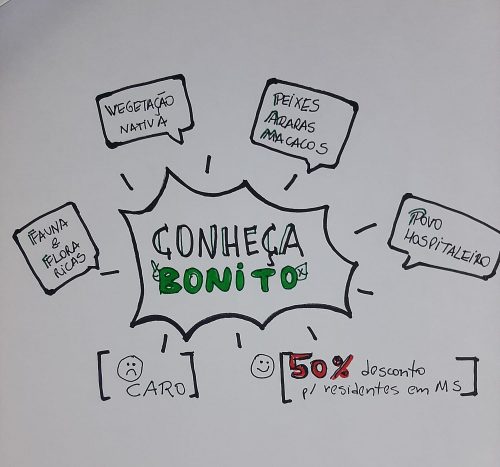 VEGETAÇÃO
NATIVA
PEIXES
ARARAS
MACACOS
FAUNA
&
FLORA
RICAS
CONHEÇA
BONITO
POVO
HOSPITALEIRO
CARO
50% desconto
p/ residentes em MS